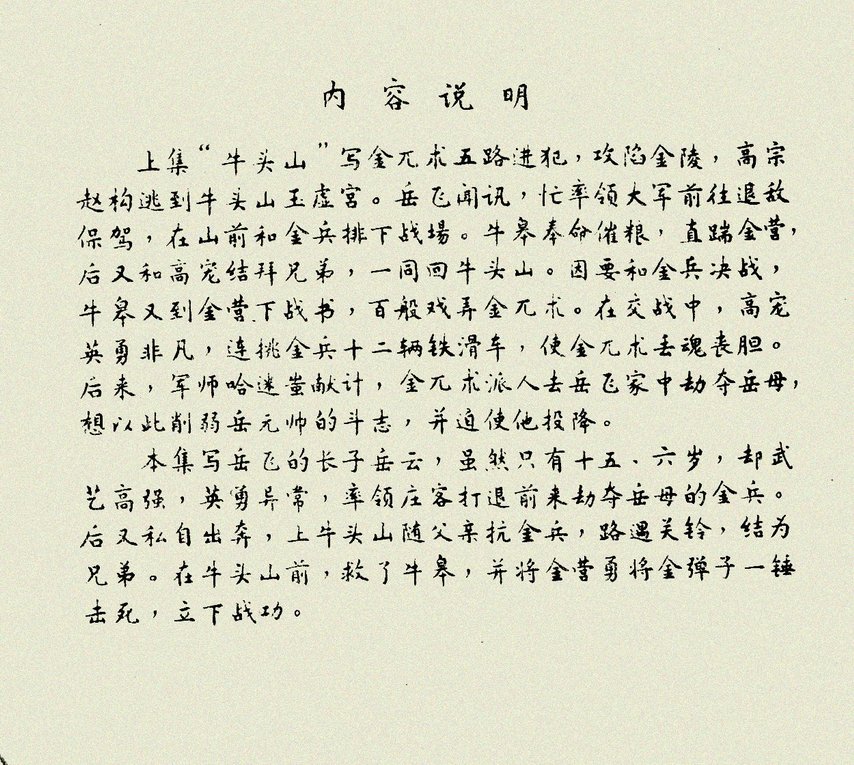 内容说明
上集“牛头山”写金兀术五路进犯，攻陷金陵，高宗
赵构逃到牛头山玉虚宫。岳飞闻讯，忙率领大军前往退敌
保驾，在山前和金兵排下战場。牛皋奉命催粮，直踹金营，
后又和高宠结拜兄弟，一同回牛头山。因要和金兵决战，
牛皋又到金营下战书，百般戏弄金兀术。在交战中，高宠
英勇非凡，连挑金兵十二辆铁滑车，使金兀术丢魂丧胆。
后来，军师哈迷蚩献计，金兀术派人去岳飞家中劫夺岳母，
想以此削弱岳元帅的斗志，并迫使他投降。
本集写岳飞的长子岳云，虽然只有十五、六岁，却武
艺高强，英勇异常，率领庄客打退前来劫夺岳母的金兵。
后又私自出奔，上牛头山随父亲抗金兵，路遇关铃，结为
兄弟。在牛头山前，救了牛皋，并将金营勇将金弹子一锤
击死，立下战功。